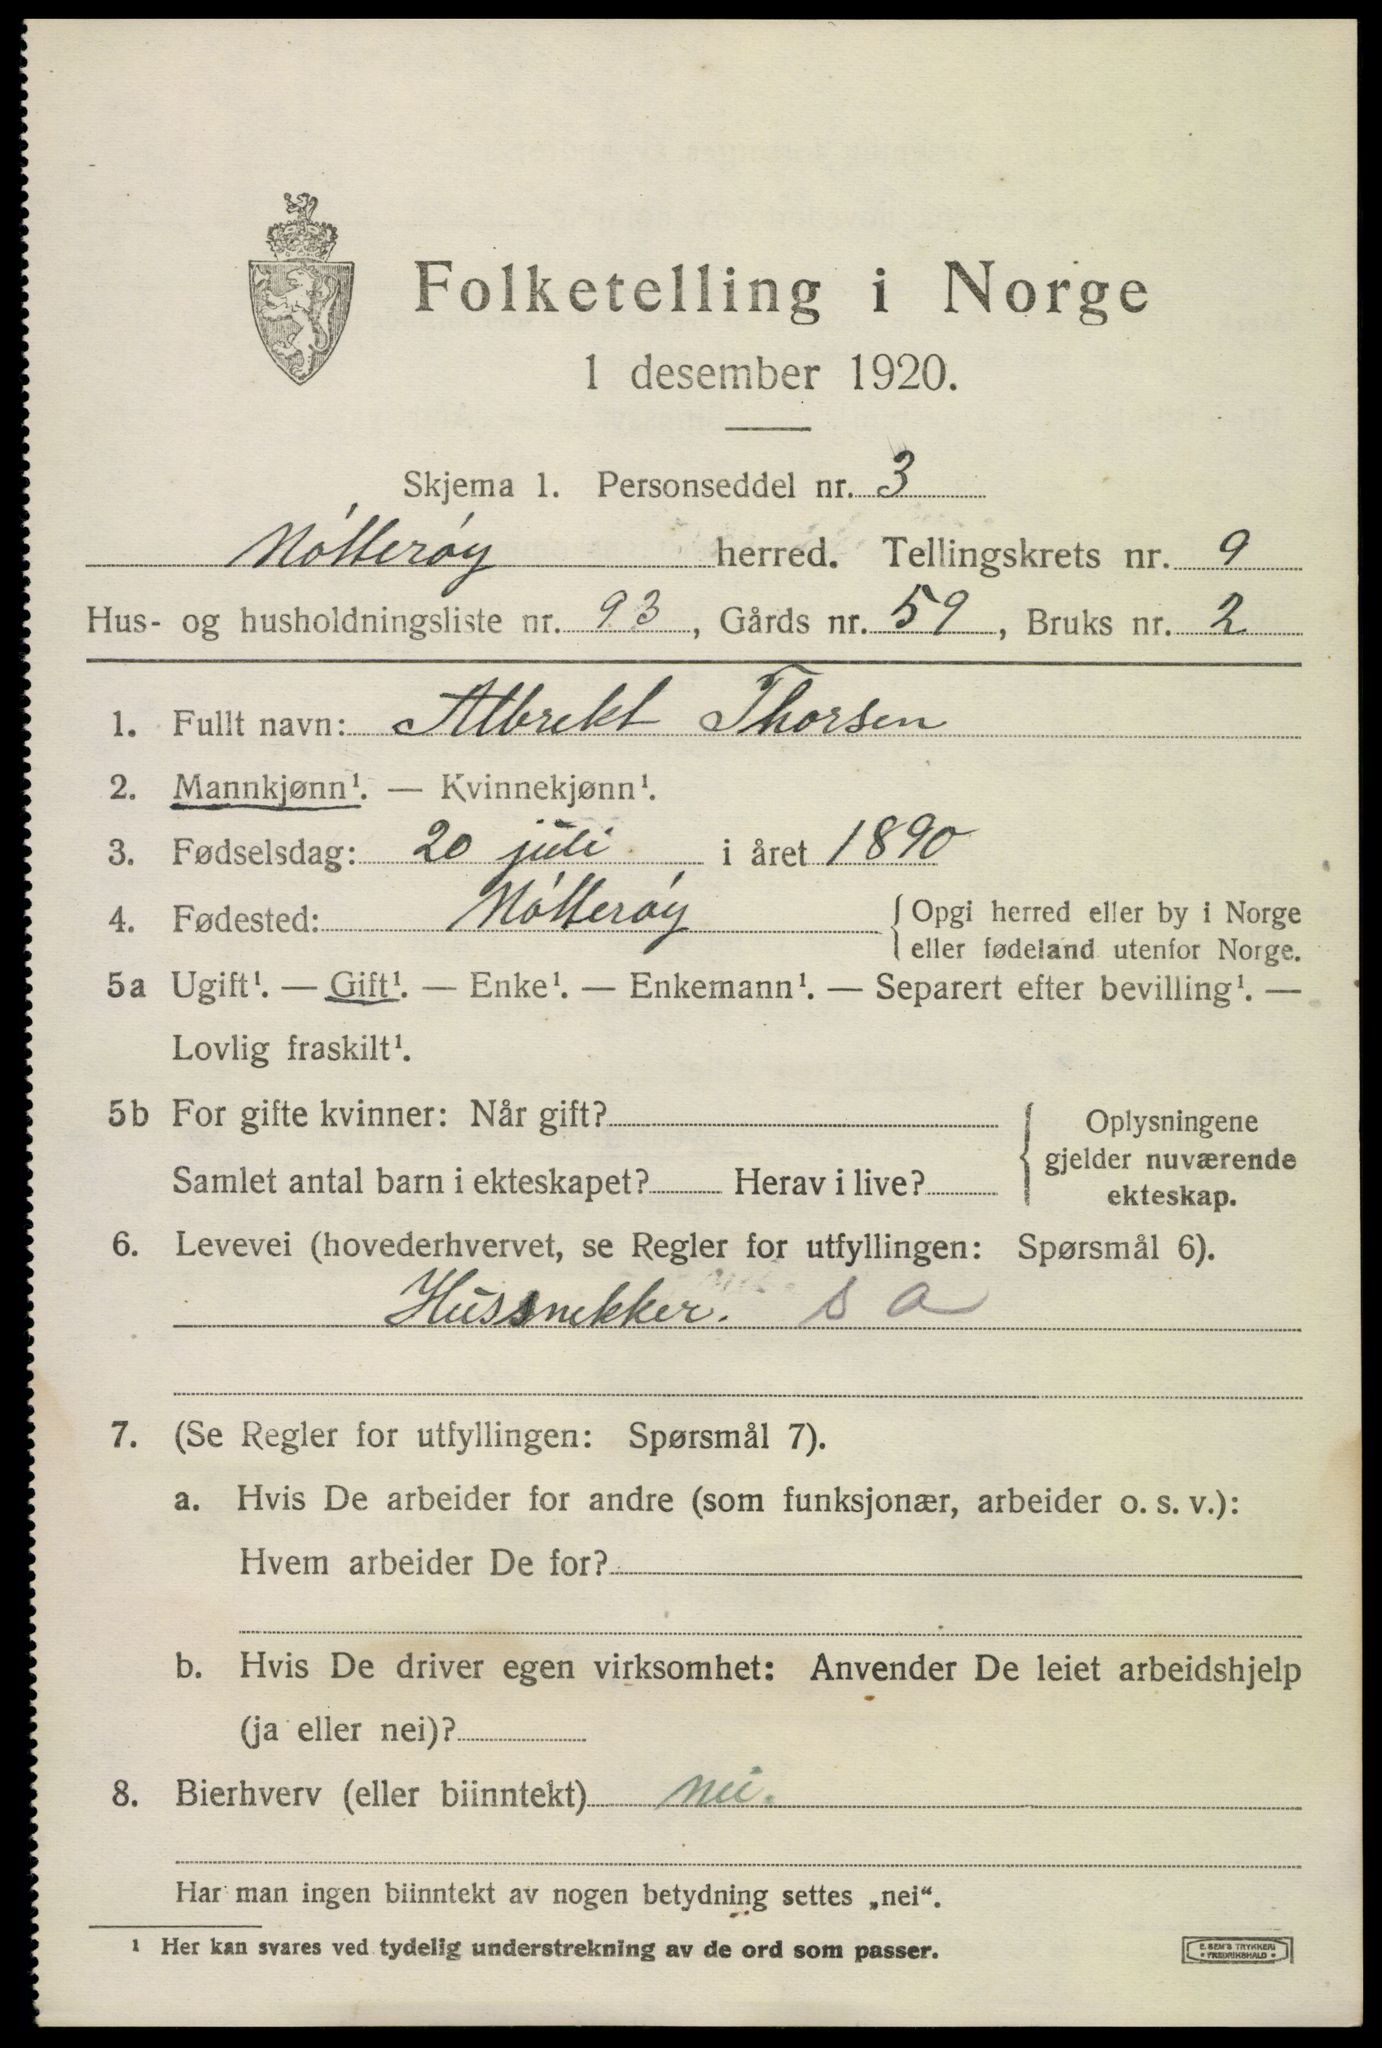 Folketelling i Norge
1 desember 1920.
Skjema 1. Personseddel nr. 3
Nótterøy herred. Tellingskrets nr. 9
Hus- og husholdningsliste nr. 93, Gårds nr. 59, Bruks nr. 2
1. Fullt navn: Albrekt Thorsen
2. Mannkjønn¹. — Kvinnekjønn¹.
3. Fødselsdag: 20 juli i året 1890
4. Fødested: Nótterøy { Opgi herred eller by i Norge
eller fødeland utenfor Norge.
5a Ugift¹. — Gift¹. — Enke¹. — Enkemann¹. — Separert efter bevilling¹. —
Lovlig fraskilt¹.
5b For gifte kvinner: Når gift?
Samlet antal barn i ekteskapet? Herav i live?
Oplysningene
gjelder nuværende
ekteskap.
6. Levevei (hovederhvervet, se Regler for utfyllingen: Spørsmål 6).
Hussnekker. s a
7. (Se Regler for utfyllingen: Spørsmål 7).
a. Hvis De arbeider for andre (som funksjonær, arbeider o. s. v.):
Hvem arbeider De for?
b. Hvis De driver egen virksomhet: Anvender De leiet arbeidshjelp
(ja eller nei)?
8. Bierhverv (eller biinntekt) nei.
Har man ingen biinntekt av nogen betydning settes „nei“.
¹ Her kan svares ved tydelig understrekning av de ord som passer.
E. SEM'S TRYKKERI
FREDRIKSHALD